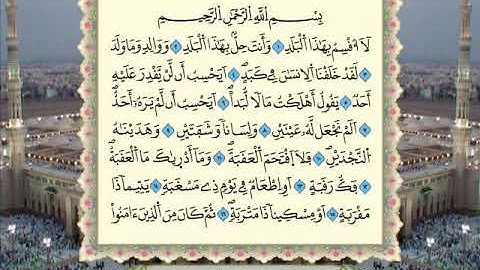 بِسْمِ اللَّهِ الرَّحْمَٰنِ الرَّحِيمِ
لَا أُقْسِمُ بِهَٰذَا الْبَلَدِ ١ وَأَنتَ حِلٌّ بِهَٰذَا الْبَلَدِ ٢ وَوَالِدٍ وَمَا وَلَدَ
٣ لَقَدْ خَلَقْنَا الْإِنسَٰنَ فِي كَبَدٍ ٤ أَيَحْسِبُ أَن لَّن يَقْدِرَ عَلَيْهِ
أَحَدٌ ٥ يَقُولُ أَهْلَكْتُ مَالًا لُّبَدًا ٦ أَيَحْسِبُ أَن لَّمْ يَرَهُ أَحَدٌ
٧ أَلَمْ نَجْعَل لَّهُ عَيْنَيْنِ ٨ وَلِسَانًا وَشَفَتَيْنِ ٩ وَهَدَيْنَٰهُ
النَّجْدَيْنِ ١٠ فَلَا اقْتَحَمَ الْعَقَبَةَ ١١ وَمَا أَدْرَىٰكَ مَا الْعَقَبَةُ
١٢ فَكُّ رَقَبَةٍ ١٣ أَوْ إِطْعَٰمٌ فِي يَوْمٍ ذِي مَسْغَبَةٍ ١٤ يَتِيمًا ذَا
مَقْرَبَةٍ ١٥ أَوْ مِسْكِينًا ذَا مَتْرَبَةٍ ١٦ ثُمَّ كَانَ مِنَ الَّذِينَ ءَامَنُوا